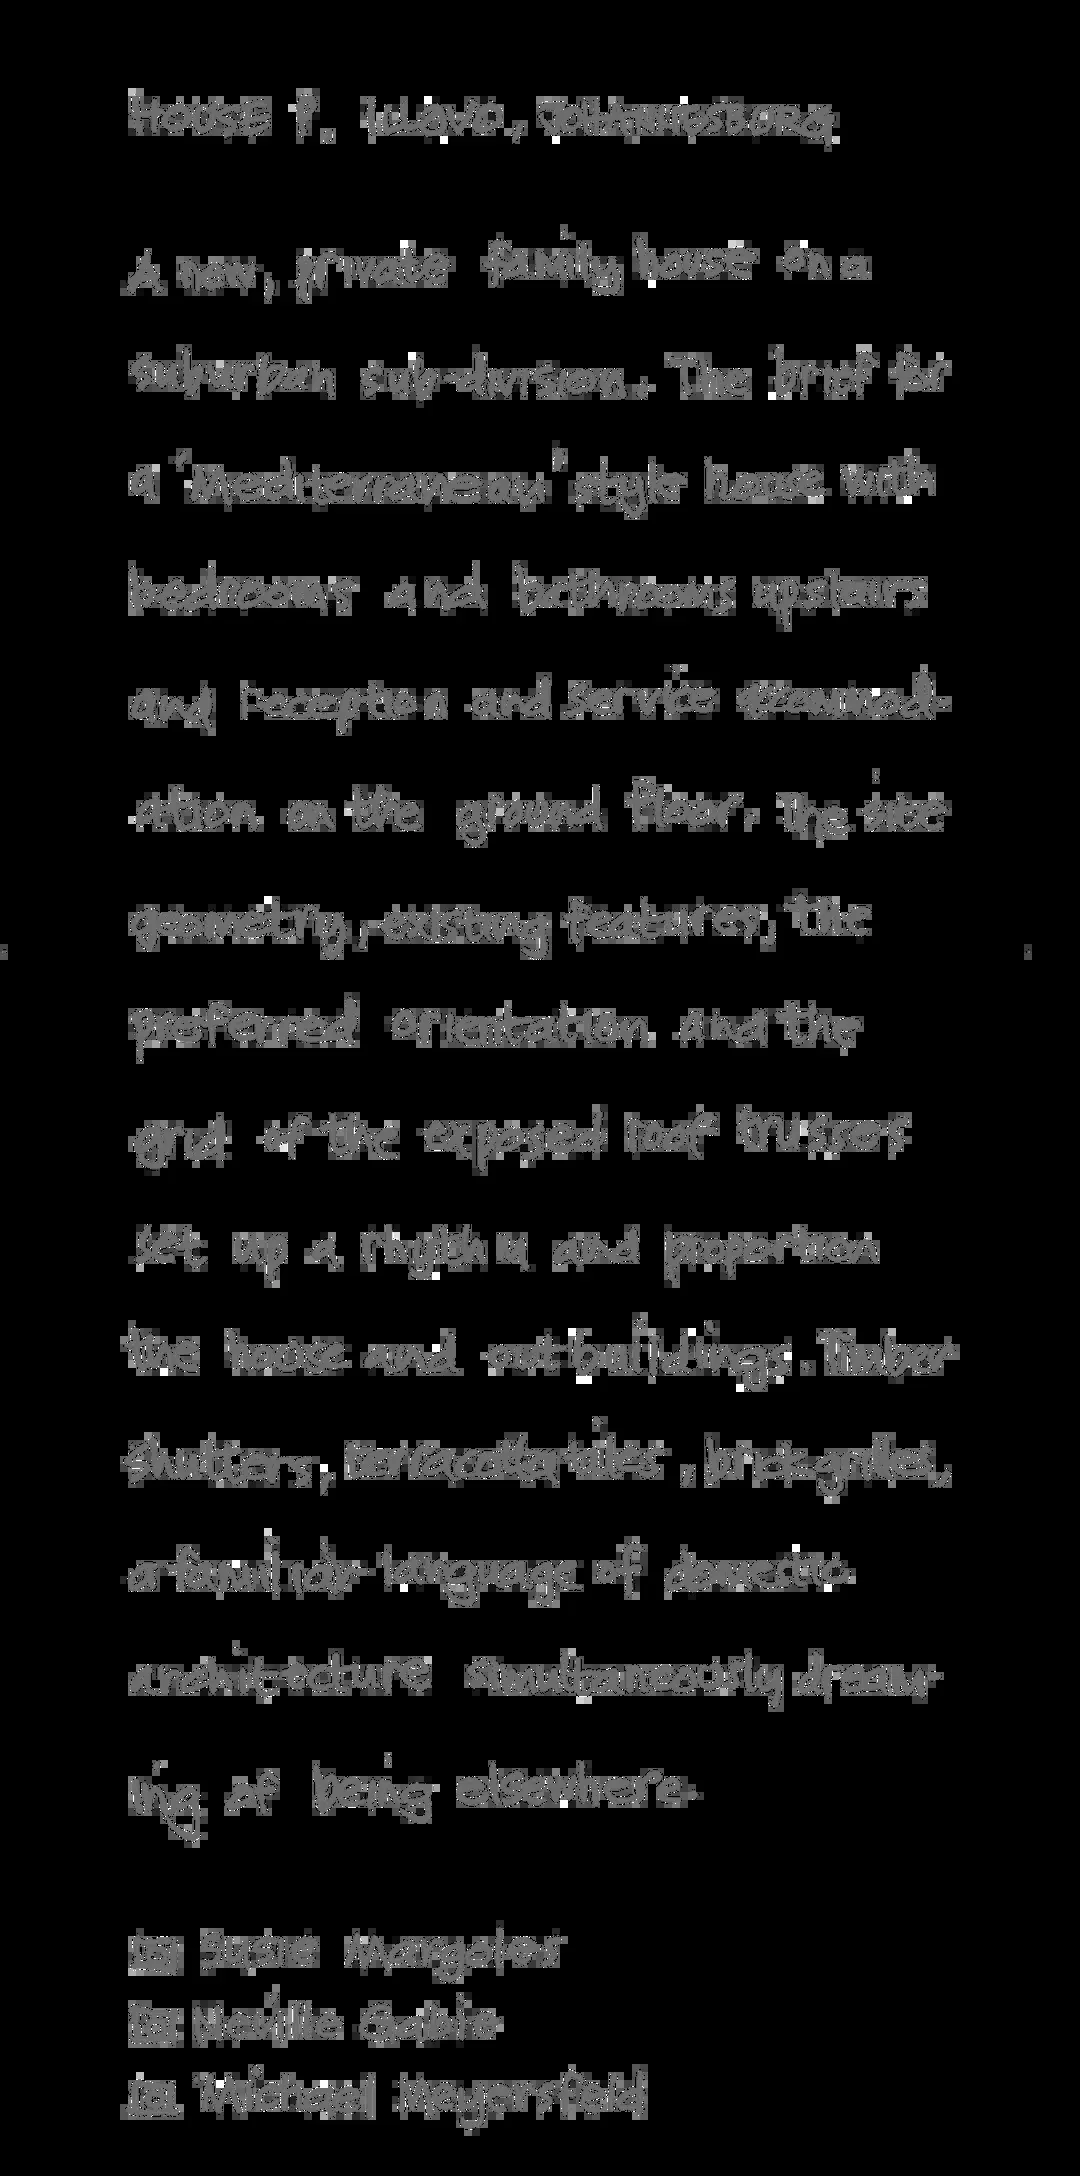 HOUSE P. ILLOVO, JOHANNESBURG
A new, private family house on a
suburban sub-division. The brief for
a "Mediterranean" style house with
bedrooms and bathrooms upstairs
and reception and service accommod-
ation on the ground floor. The site
geometry, existing features, the
preferred orientation and the
grid of the exposed roof trusses
set up a rhythm and proportion
the house and outbuildings. Timber
shutters, terracotta tiles, brick grilles,
a familiar language of domestic
architecture simultaneously dream-
ing of being elsewhere.
Susie Margoles
Neville Gabie
Michael Meyersfeld